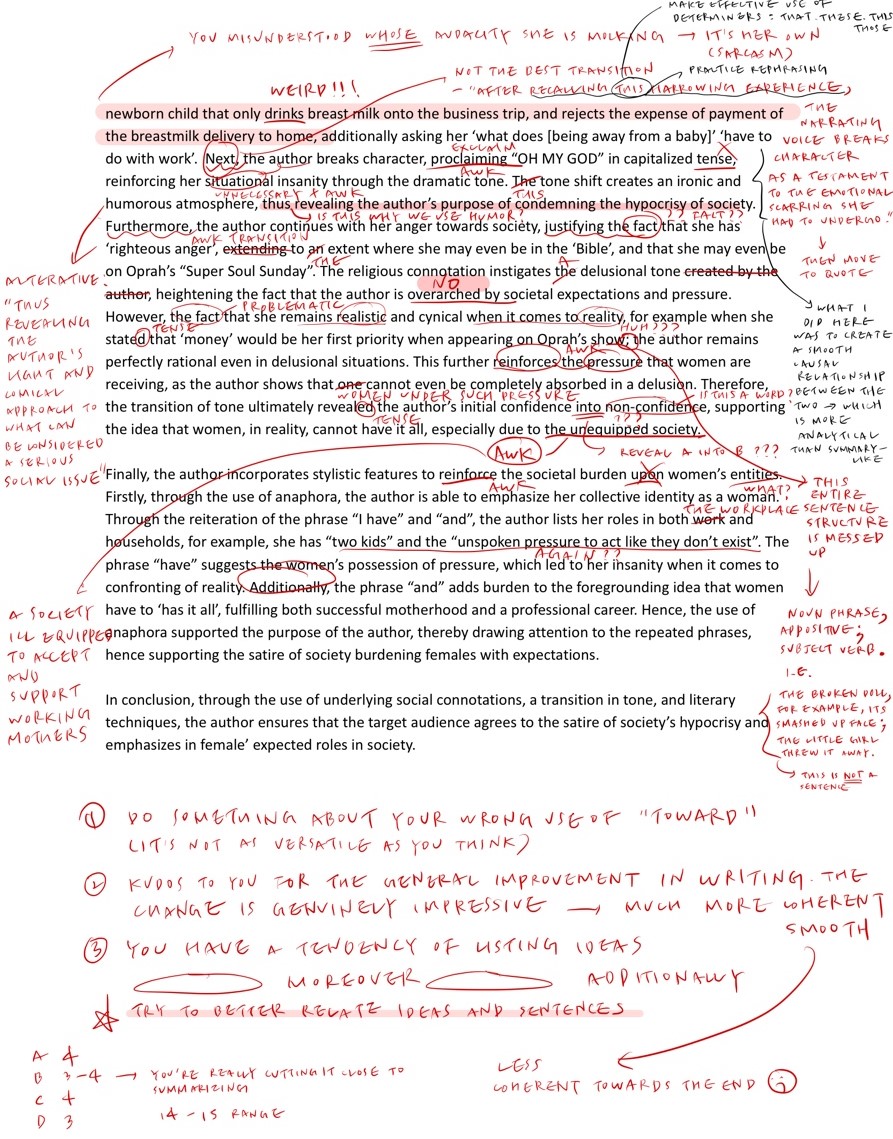 MAKE EFFECTIVE USE OF
DETERMINERS: THAT. THESE. THIS
THOSE
YOU MISUNDERSTOOD WHOSE AUDACITY SHE IS MOLKING → IT'S HER OWN
(SARCASM)
NOT THE BEST TRANSITION
PRACTICE REPHRASING
- "AFTER RECALLING THIS HARROWING EXPERIENCE,
WEIRD!!!
THE
NARRATING
VOICE BREAKS
CHARACTER
AS A TESTAMENT
TO THE EMOTIONAL
SCARRING SHE
HAD TO UNDERGO."
THEN MOVE
TO QUOTE
newborn child that only drinks breast milk onto the business trip, and rejects the expense of payment of
the breastmilk delivery to home, additionally asking her 'what does [being away from a baby]' 'have to
EXCLAIM
do with work'. Next, the author breaks character, proclaiming "OH MY GOD" in capitalized tense,
AWK
reinforcing her situational insanity through the dramatic tone. The tone shift creates an ironic and
UNNECESSARY & AWK
THIS
humorous atmosphere, thus revealing the author's purpose of condemning the hypocrisy of society.
IS THIS WHY WE USE HUMOR?
?? FACT??
Furthermore, the author continues with her anger towards society, justifying the fact that she has
AWK TRANSITION
'righteous anger', extending to an extent where she may even be in the 'Bible', and that she may even be
THE
A
on Oprah's "Super Soul Sunday". The religious connotation instigates the delusional tone created by the
NO
author, heightening the fact that the author is overarched by societal expectations and pressure.
PROBLEMATIC
However, the fact that she remains realistic and cynical when it comes to reality, for example when she
TENSE
HUH???
stated that 'money' would be her first priority when appearing on Oprah's show; the author remains
AWK
perfectly rational even in delusional situations. This further reinforces the pressure that women are
receiving, as the author shows that one cannot even be completely absorbed in a delusion. Therefore,
WOMEN UNDER SUCH PRESSURE
IS THIS A WORD?
the transition of tone ultimately revealed the author's initial confidence into non-confidence, supporting
TENSE
???
the idea that women, in reality, cannot have it all, especially due to the unequipped society.
AWK
REVEAL A INTO B ???
ALTERATIVE:
"THUS
REVEALING
THE
AUTHOR'S
LIGHT AND
COMICAL
APPROACH TO
WHAT CAN
BE CONSIDERED
A SERIOUS
SOCIAL ISSUE"
WHAT I
DID HERE
WAS TO CREATE
A SMOOTH
CAUSAL
RELATIONSHIP
BETWEEN THE
TWO → WHICH
IS MORE
ANALYTICAL
THAN SUMMARY-
LIKE
Finally, the author incorporates stylistic features to reinforce the societal burden upon women's entities.
AWK
WHAT?
Firstly, through the use of anaphora, the author is able to emphasize her collective identity as a woman.
THE WORKPLACE
Through the reiteration of the phrase "I have" and "and", the author lists her roles in both work and
households, for example, she has "two kids" and the "unspoken pressure to act like they don't exist". The
AGAIN??
phrase "have" suggests the women's possession of pressure, which led to her insanity when it comes to
confronting of reality. Additionally, the phrase "and" adds burden to the foregrounding idea that women
have to 'has it all', fulfilling both successful motherhood and a professional career. Hence, the use of
anaphora supported the purpose of the author, thereby drawing attention to the repeated phrases,
hence supporting the satire of society burdening females with expectations.
A SOCIETY
ILL EQUIPPED
TO ACCEPT
AND
SUPPORT
WORKING
MOTHERS
THIS
ENTIRE
SENTENCE
STRUCTURE
IS MESSED
UP
NOUN PHRASE,
APPOSITIVE;
SUBJECT VERB.
I.E.
THE BROKEN DOLL,
FOR EXAMPLE, ITS
SMASHED UP FACE;
THE LITTLE GIRL
THREW IT AWAY.
→ THIS IS NOT A
SENTENCE
In conclusion, through the use of underlying social connotations, a transition in tone, and literary
techniques, the author ensures that the target audience agrees to the satire of society's hypocrisy and
emphasizes in female' expected roles in society.
① DO SOMETHING ABOUT YOUR WRONG USE OF "TOWARD"
(IT'S NOT AS VERSATILE AS YOU THINK)
② KUDOS TO YOU FOR THE GENERAL IMPROVEMENT IN WRITING. THE
CHANGE IS GENUINELY IMPRESSIVE → MUCH MORE COHERENT
SMOOTH
③ YOU HAVE A TENDENCY OF LISTING IDEAS
MOREOVER ADDITIONALLY
TRY TO BETTER RELATE IDEAS AND SENTENCES
A 4
B 3-4 → YOU'RE REALLY CUTTING IT CLOSE TO
SUMMARIZING
C 4
D 3
14 - 15 RANGE
LESS
COHERENT TOWARDS THE END